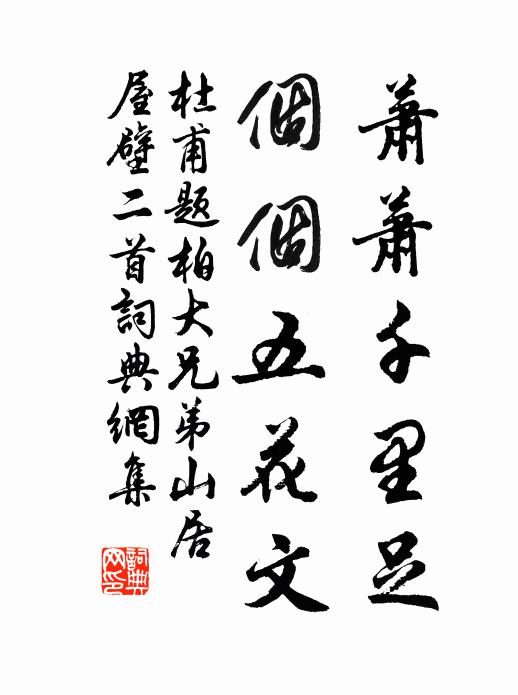 蕭蕭千里足
個個五花文
杜甫題柏大兄弟山居
屋壁二首詞典網集
詞典网印